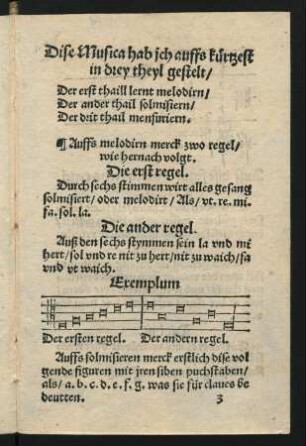 Dise Musica hab jch auffs kürtzest
in drey theyl gestelt/
Der erst thaill lernt melodirn/
Der ander thail solmisiern/
Der drit thail mensuriern.
¶ Auffs melodirn merck zwo regel/
wie hernach volgt.
Die erst regel.
Durch sechs stimmen wirt alles gesang
solmisiert/ oder melodirt/ Als/ vt. re. mi.
fa. sol. la.
Die ander regel.
Auß den sechs stymmen sein la vnd mi
hert/ sol vnd re nit zu hert/ nit zu waich/ fa
vnd vt waich.
Exemplum
Der ersten regel. Der andern regel.
Auffs solmisieren merck erstlich dise vol
gende figuren mit jren siben puchstaben/
als/ a. b. c. d. e. f. g. was sie für claues be
deutten. 3